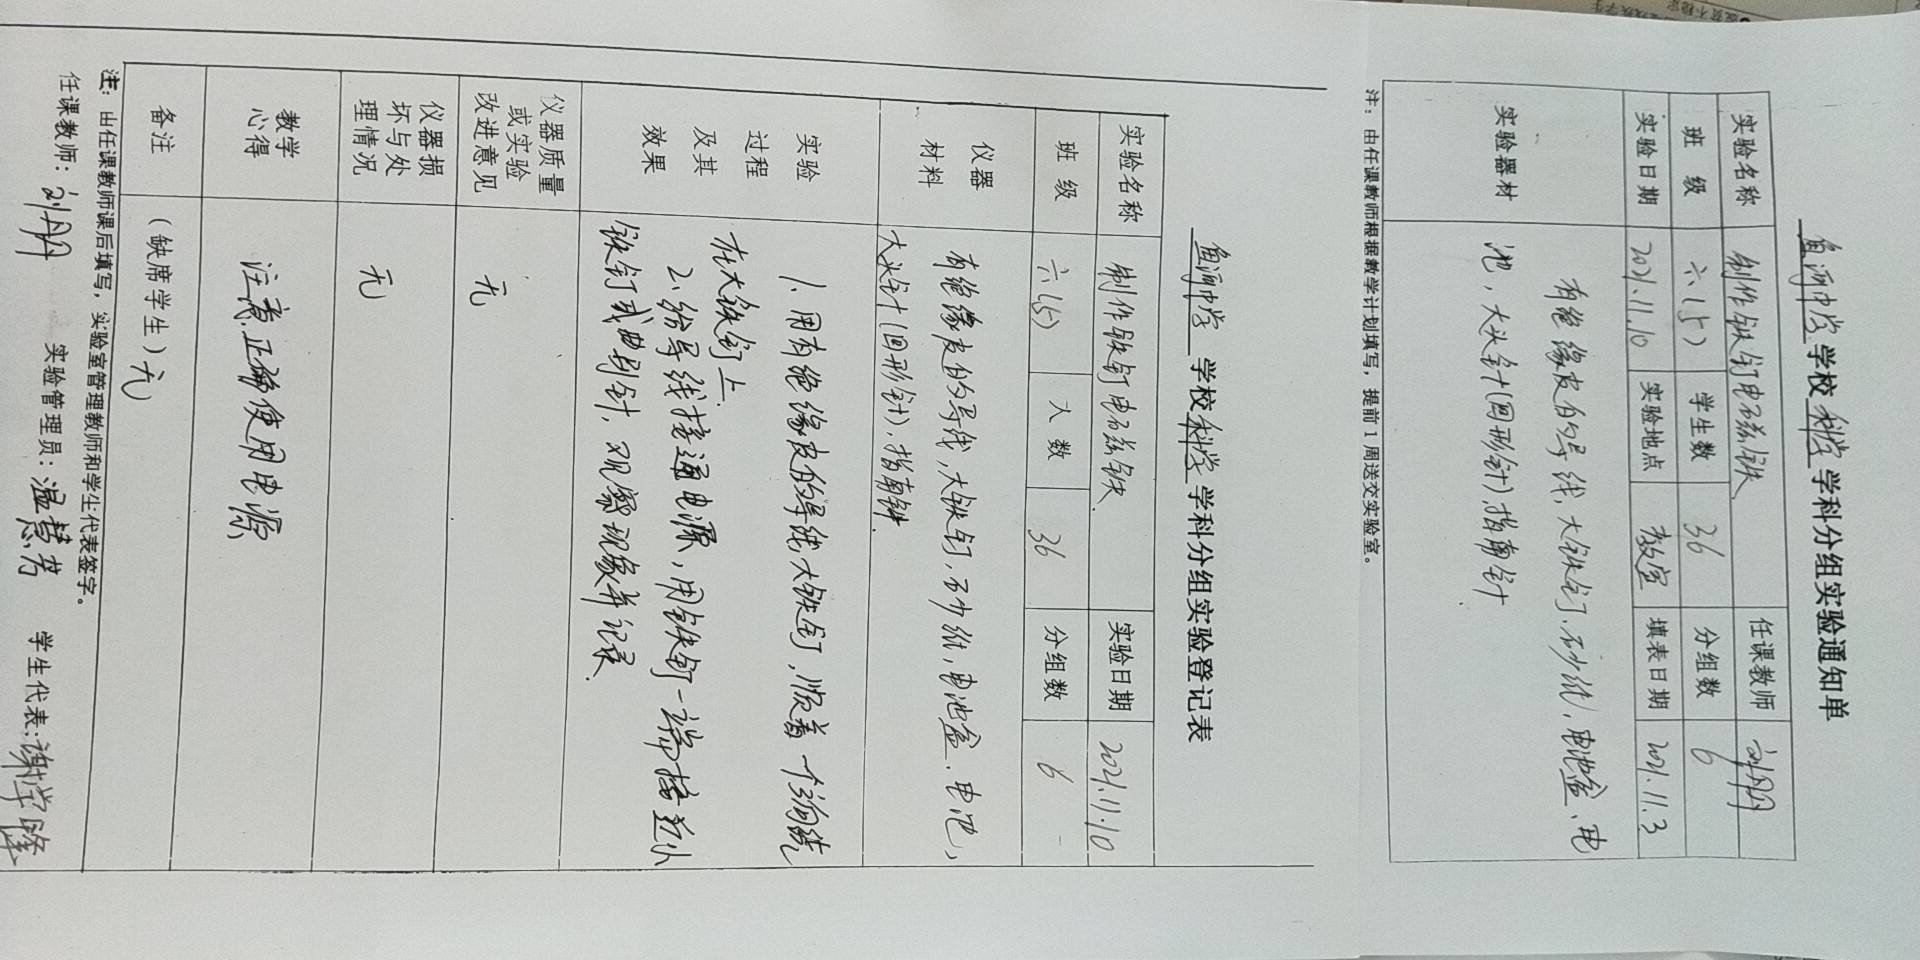 鱼河中学 学校 科学 学科分组实验通知单
实验名称 制作铁钉电磁铁 任课教师 刘丹丹
班 级 六(5) 学生数 36 分组数 6
实验日期 2021.11.10 实验地点 教室 填表日期 2021.11.3
实验器材 有绝缘皮的导线,大铁钉,砂纸,电池盒、电
池,大头针(回形针)指南针
注:由任课教师根据教学计划填写,提前1周送交实验室。
鱼河中学 学校 科学 学科分组实验登记表
实验名称 制作铁钉电磁铁 实验日期 2021.11.10
班 级 六(5) 人 数 36 分组数 6
仪器
材料
有绝缘皮的导线,大铁钉,砂纸,电池盒、电池,
大头针(回形针),指南针.
实验
过程
及其
效果
1、用有绝缘皮的导线,大铁钉,顺着一个方向绕
在大铁钉上.
2、给导线接通电源,用铁钉一端接近小
铁钉或曲别针,观察现象并记录.
仪器质量
或实验
改进意见
无
仪器损
坏与处
理情况
无
教学
心得
注意正确使用电源
备注 (缺席学生)无
注:由任课教师课后填写,实验室管理教师和学生代表签字。
任课教师:刘丹丹 实验管理员:温慧芳 学生代表:谢学